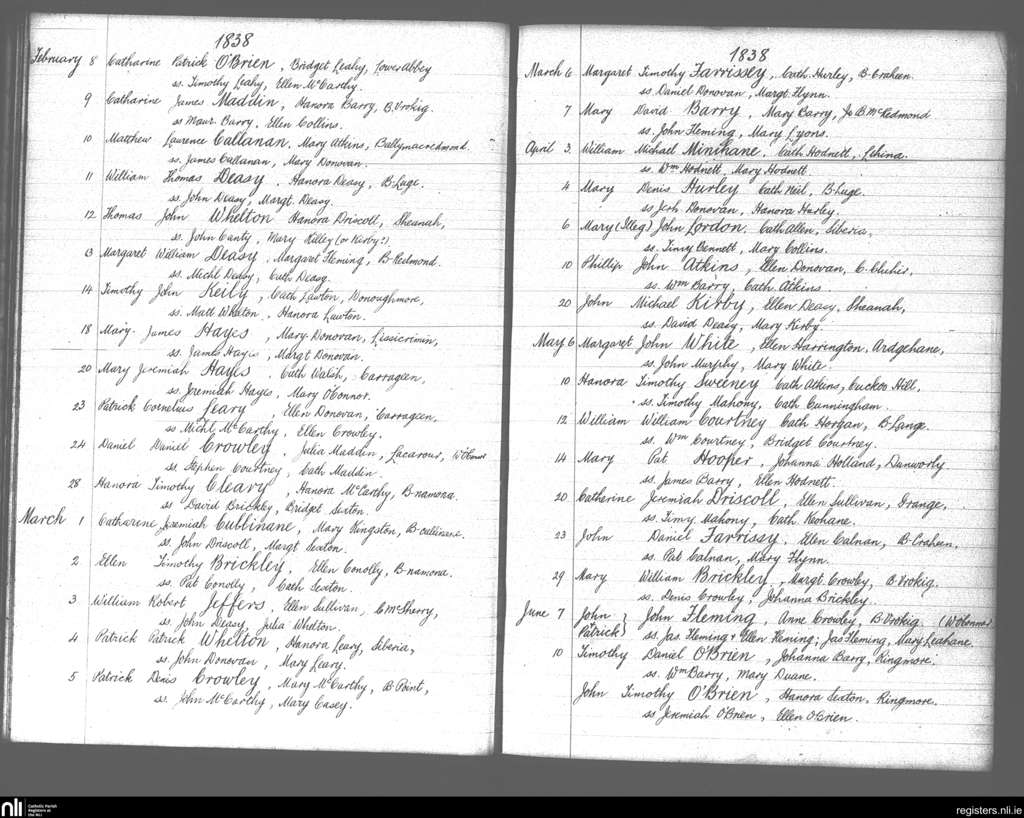 1838
February 8 Catharine Patrick O'Brien, Bridget Leahy, Tower Abbey
ss. Timothy Leahy, Ellen McCarthy.
9 Catharine James Maddin, Hanora Barry, B.Vrokig.
ss Maur. Barry, Ellen Collins.
10 Matthew Laurence Callanan, Mary Atkins, Ballymacredmond.
ss. James Callanan, Mary Donovan.
11 William Thomas Deasy, Hanora Deasy, B-Luge.
ss. John Deasy, Margt. Deasy.
12 Thomas John Whelton Hanora Driscoll, Sheanah,
ss. John Canty, Mary Killey (or Kirby?)
13 Margaret William Deasy, Margaret Fleming, B-Redmond.
ss. Michl Deasy, Cath Deasy.
14 Timothy John Keily, Cath Lawton, Donoughmore,
ss. Matt Whelton, Hanora Lawton.
18 Mary James Hayes, Mary Donovan, Lissicrimin,
ss. James Hayes, Margt Donovan.
20 Mary Jeremiah Hayes, Cath Walsh, Carrageen,
ss. Jeremiah Hayes, Mary O'Connor.
23 Patrick Cornelius Leary, Ellen Donovan, Carrageen,
ss Michl McCarthy, Ellen Crowley.
24 Daniel Daniel Crowley, Julia Maddin, Lacarour, W O'Connor
ss. Stephen Courtney, Cath Maddin.
28 Hanora Timothy Cleary, Hanora McCarthy, B-namona.
ss David Brickley, Bridget Sexton.
March 1 Catharine Jeremiah Cullinane, Mary Kingston, B-cullinane.
ss. John Driscoll, Margt Sexton.
2 Ellen Timothy Brickley, Ellen Conolly, B-namona.
ss. Pat Conolly, Cath Sexton.
3 William Robert Jeffers, Ellen Sullivan, C McSherry,
ss. John Deasy, Julia Whelton.
4 Patrick Patrick Whelton, Hanora Leary, Siberia,
ss. John Donovan, Mary Leary.
5 Patrick Denis Crowley, Mary McCarthy, B-Point,
ss. John McCarthy, Mary Casey.
1838
March 6 Margaret Timothy Farrissey, Cath Hurley, B-Craheen.
ss Daniel Donovan, Margt Flynn.
7 Mary David Barry, Mary Barry, Jo B. McRedmond
ss. John Fleming, Mary Lyons.
April 3. William Michael Minihane, Cath Hodnett,
ss. Wm Hodnett, Mary Hodnett
4 Mary Denis Hurley Cath Neil, B-Luge.
ss Jerh Donovan, Hanora Hurley.
6 Mary (Illeg) John Lordon. Cath Allen, Siberia,
ss. Timy Bennett, Mary Collins.
10 Phillip John Atkins, Ellen Donovan, C-Clehir,
ss. Wm Barry, Cath Atkins.
20 John Michael Kirby, Ellen Deasy, Sheanah,
ss. David Deasy, Mary Kirby.
May 6 Margaret John White, Ellen Harrington, Ardgehane,
ss. John Murphy, Mary White.
10 Hanora Timothy Sweeney Cath Atkins, Cuckoo Hill,
ss. Timothy Mahony, Cath Cunningham.
12 William William Courtney Cath Horgan, B-Lange.
ss. Wm Courtney, Bridget Courtney.
14 Mary Pat Hooper, Johanna Holland, Dunworly
ss. James Barry, Ellen Hodnett.
20 Catherine Jeremiah Driscoll, Ellen Sullivan, Grange,
ss. Timy Mahony, Cath Keohane.
23 John Daniel Farrissy, Ellen Calnan, B-Craheen,
ss. Pat Calnan, Mary Flynn.
29 Mary William Brickley, Margt Crowley, B.Vrokig.
ss. Denis Crowley, Johanna Brickley.
June 7 John } John Fleming, Anne Crowley, B.Vrokig. (W O'Connor
Patrick } ss. Jas. Fleming + Ellen Fleming; Jas Fleming, Mary Leahane.
10 Timothy Daniel O'Brien, Johanna Barry, Ringmore.
ss. Wm Barry, Mary Duane.
John Timothy O'Brien, Hanora Sexton, Ringmore.
ss Jeremiah O'Brien, Ellen O'Brien.
nli
Catholic Parish
Registers at
the NLI
registers.nli.ie